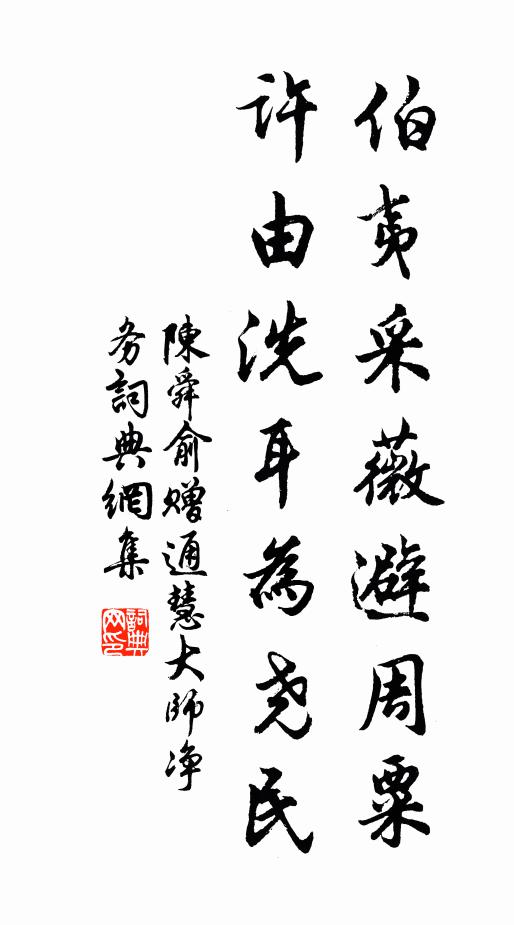 伯夷采薇避周粟
許由洗耳為尧民
陳舜俞赠通慧大師净
务詞典網集
詞典
网印